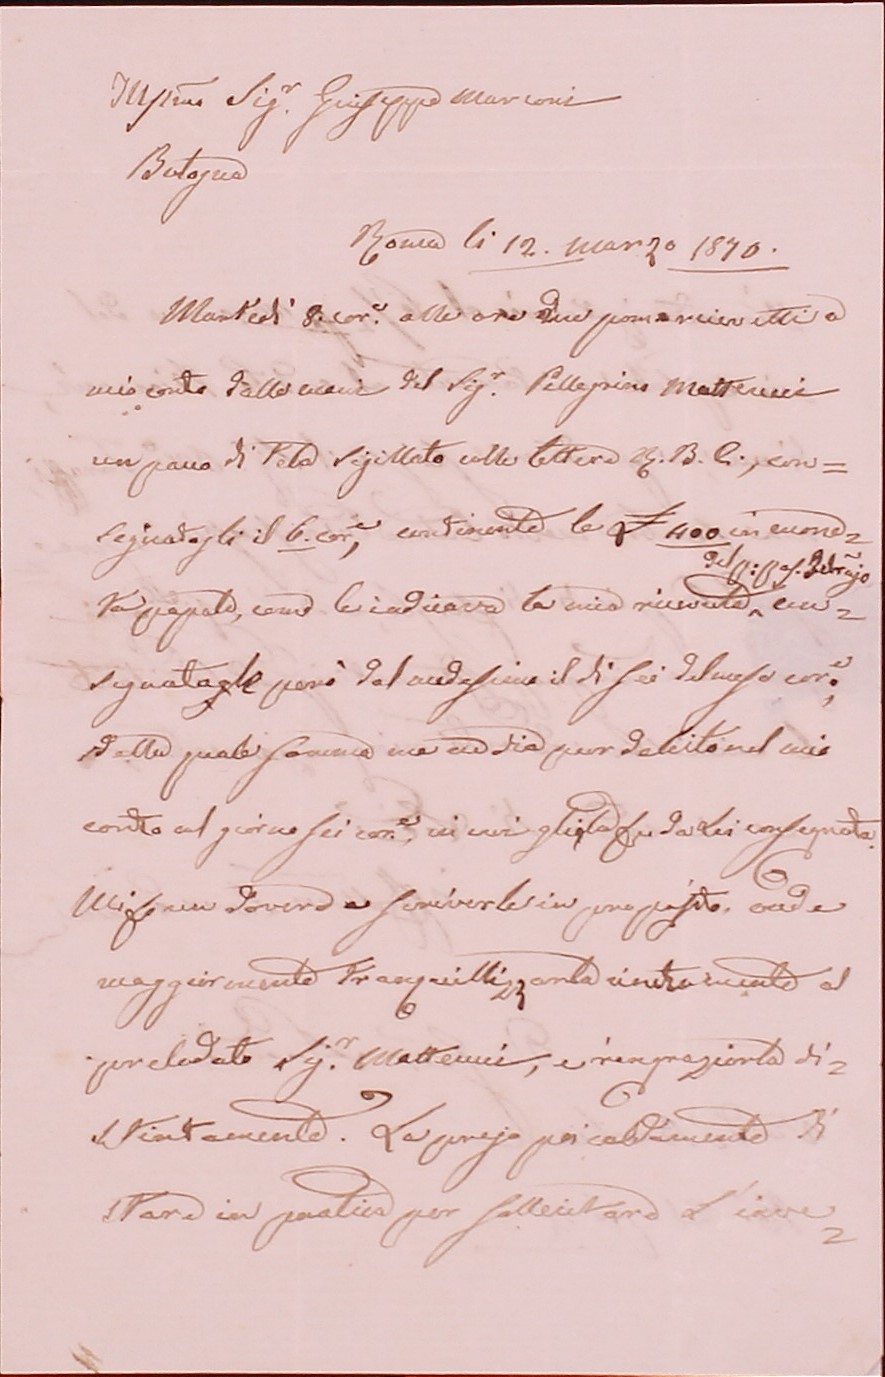 Illmo Sigr. Giuseppe Marconi
Bologna
Roma li 12. marzo 1870.
Martedì 8. corre. alle ore due pom. ricevetti a
mio conto dalle mani del Sigr. Pellegrino Matteucci
un pacco di tela sigillato colle lettere B. C., con=
segnatogli il 6. corre, contenente le £ 400 in mone=
del p:p.
ta papale, come le indicava la mia ricevuta, con=
segnatagle però dal medesimo il dì sei del mese corre;
della quale somma me ne dia pur debito nel mio
conto al giorno sei corre, in cui gliela fu da Lei consegnata.
Mi fo un dovere a scriverle in proposito, onde
maggiormente tranquillizzarla unitamente al
prelodato Sigr. Matteucci, e ringraziarla di=
stintamente. La prego poi caldamente di
stare in pratica per sollecitare l'inve=